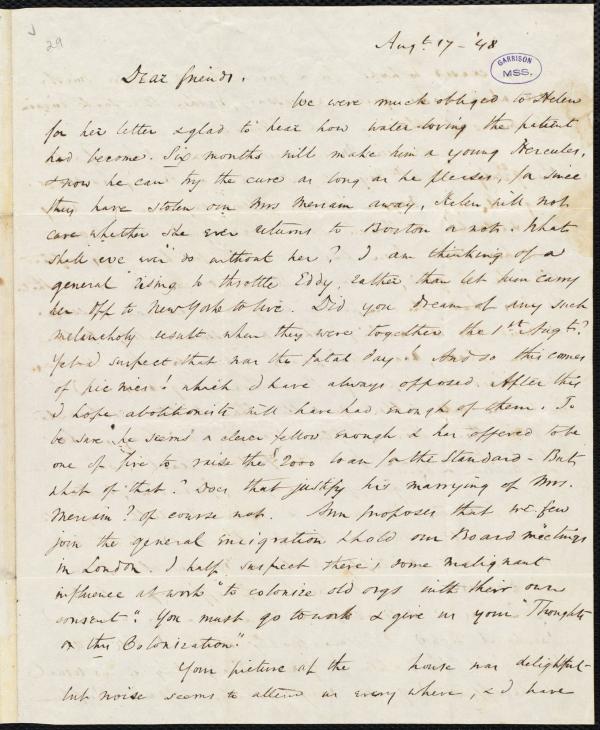 29
Augt. 17 - '48
GARRISON
MSS.
Dear friends.
We were much obliged to Helen
for her letter & glad to hear how water-loving the patient
had become. Six months will make him a young Hercules,
& now he can try the cure as long as he pleases, for since
they have stolen our Mrs Meriam away, Helen will not
care whether she ever returns to Boston or not. What
shall "we uns" do without her? I am thinking of a
general rising to throttle Eddy, rather than let him carry
her off to New York to live. Did you dream of any such
melancholy result when they were together the 1st Augt?
Yet I suspect that was the fatal day. And so this comes
of pic nics! which I have always opposed. After this
I hope abolitionists will have had enough of them. To
be sure he seems a clever fellow enough & has offered to be
one of five to raise the $2000 loan for the Standard - But
what of that? Does that justify his marrying of Mrs.
Meriam? of course not. Ann proposes that we few
join the general emigration & hold our Board meetings
in London. I half suspect there's some malignant
influence at work "to colonize old orgs with their own
consent". You must go to work & give us your "Thoughts
on this Colonization".
Your picture of the house was delightful -
but noise seems to attend us every where, & I have